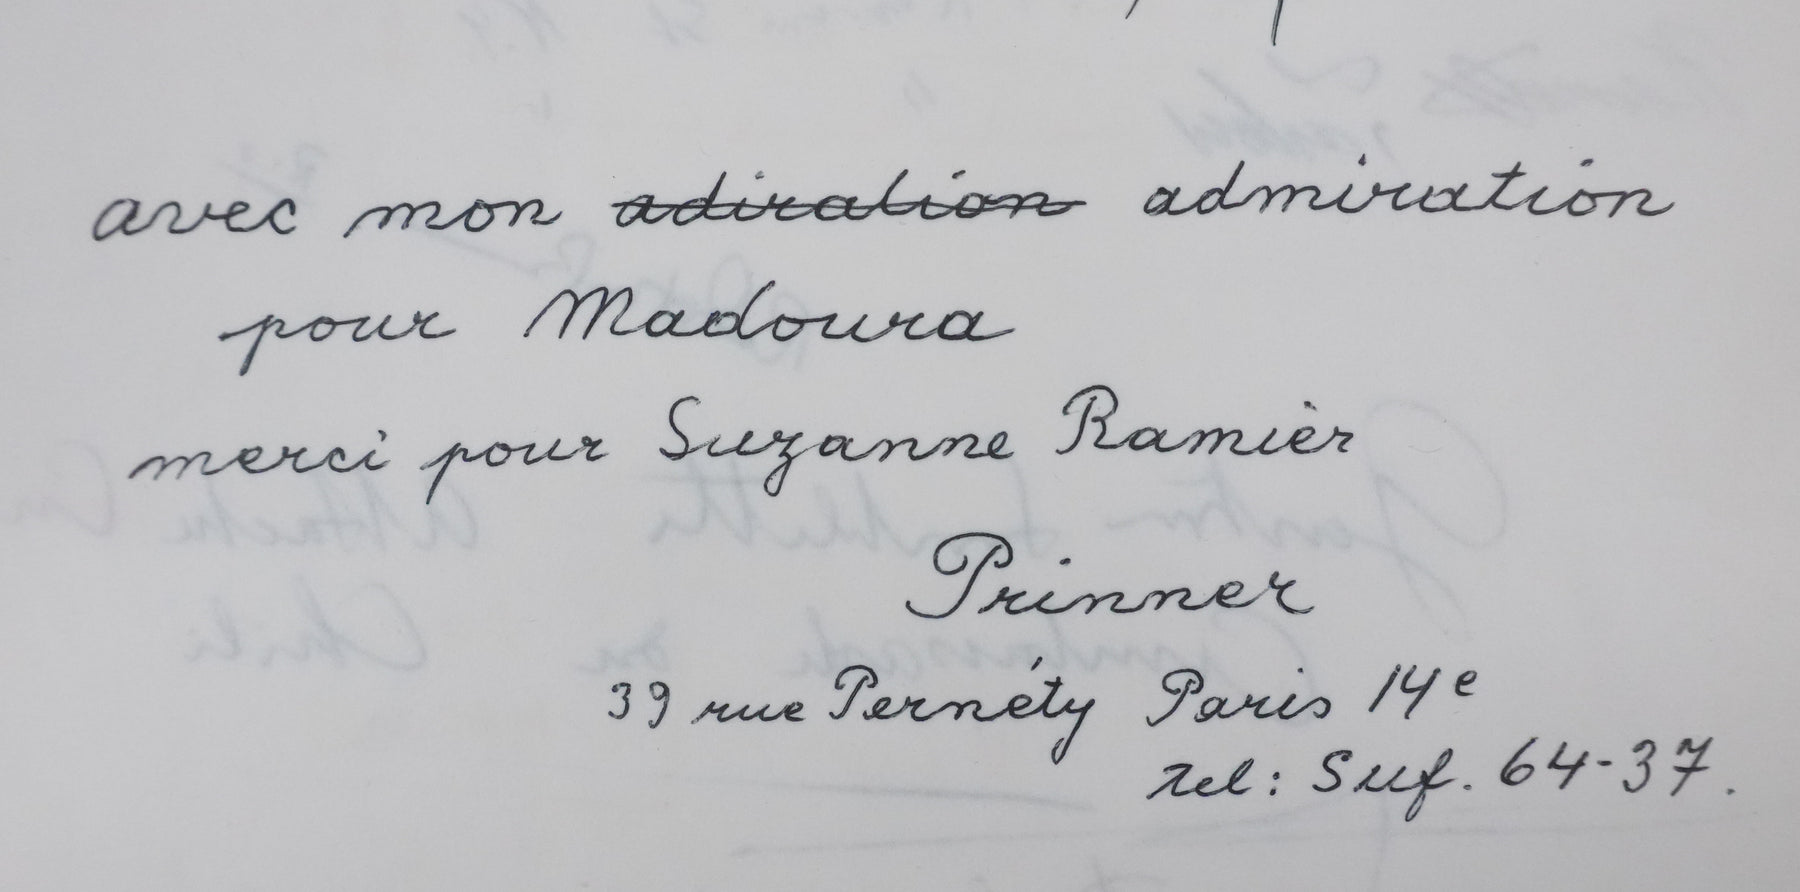 avec mon adiration admiration
pour Madoura
merci pour Suzanne Ramièr
Prinner
39 rue Pernéty Paris 14e
tel: Suf. 64-37.